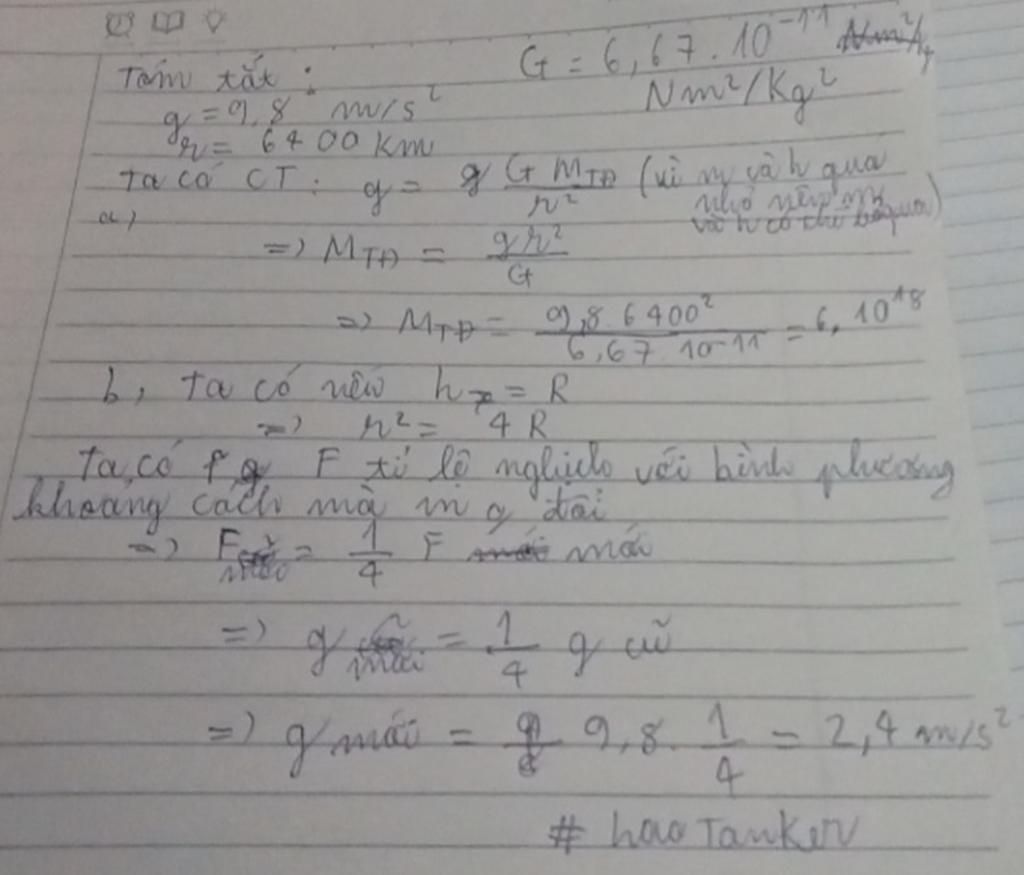 Tóm tắt :
G = 6,67.10^-11
Nm²/Kg²
g = 9,8 m/s²
r = 6400 km
ta có CT: g = G M_TĐ / r² (vì m và h quá
nhỏ nên m
và h có thể bỏ qua)
a,
=> M_TĐ = gr² / G
=> M_TĐ = 9,8.6400² / 6,67.10^-11 = 6.10^18
b, ta có nếu h = R
=> r² = 4R
Ta có F tỉ lệ nghịch với bình phương
khoảng cách mà m g đổi
=> F = 1/4 F mới
=> g mới = 1/4 g cũ
=> g mới = 9,8 . 1/4 = 2,4 m/s²
# hao Tanker